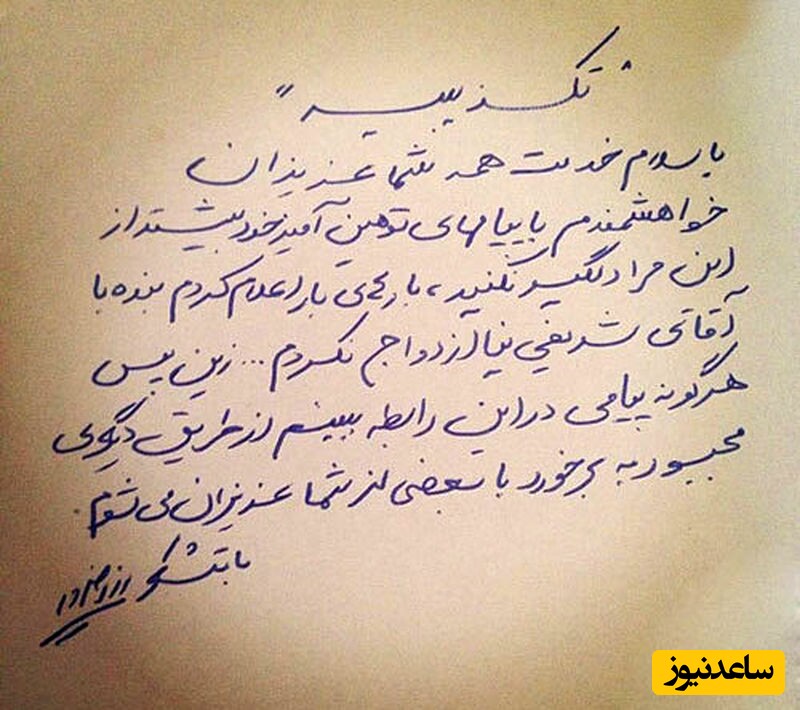 "تکذیبیه"
با سلام خدمت همه شما عزیزان
خواهشمندم با پیامهای توهین آمیز خود بیشتر از
این مرا دلگیر نکنید، بارهای بار اعلام کردم بنده با
آقای شریفی نیا ازدواج نکردم... زین پس
هرگونه پیامی در این رابطه ببینم از طریق دیگری
مجبور به برخورد با بعضی از شما عزیزان می شوم.
با تشکر
ساعدنیوز